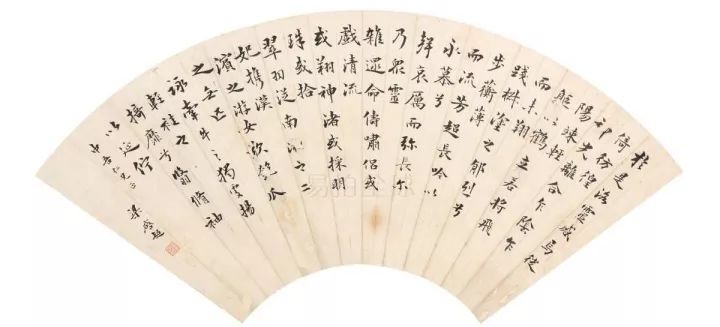 於是洛靈感焉徙
倚彷徨
神光離合乍陰乍
陽竦輕
軀以鶴立若將飛
而未翔
踐椒塗之郁烈兮
步蘅薄
而流芳超長吟以
永慕兮
聲哀厲而彌長尔
乃眾靈
雜遝命儔嘯侶或
戲清流
或翔神渚或採明
珠或拾
翠羽從南湘之二
妃攜漢
濱之游女歎匏瓜
之無匹
詠牽牛之獨處揚
輕袿之
猗靡兮翳脩袖
以延佇
仁兄正 梁啟超